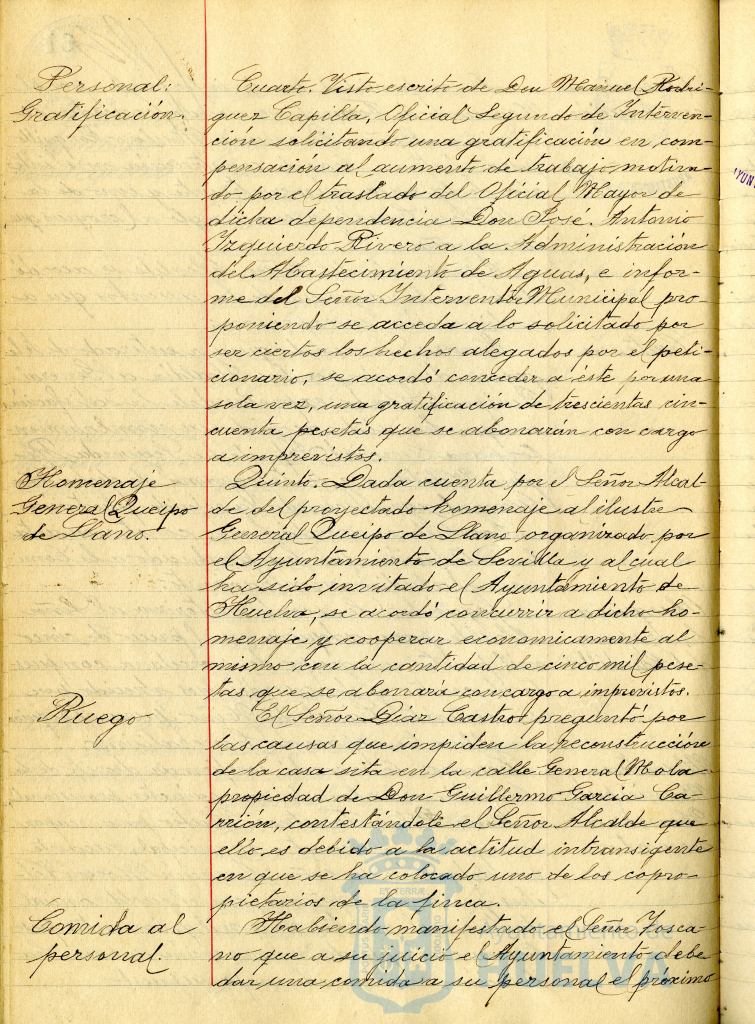 Personal:
Gratificación.
Cuarto. Visto escrito de Don Manuel Rodri-
guez Capilla, Oficial Segundo de Interven-
ción solicitando una gratificación en com-
pensación al aumento de trabajo motiva-
do por el traslado del Oficial Mayor de
dicha dependencia Don José Antonio
Izquierdo Rivero a la Administración
del Abastecimiento de Aguas, e infor-
me del Señor Interventor Municipal pro-
poniendo se acceda a lo solicitado por
ser ciertos los hechos alegados por el peti-
cionario, se acordó conceder a éste por una
sola vez, una gratificación de trescientas cin-
cuenta pesetas que se abonarán con cargo
a imprevistos.
Homenaje
General Queipo
de Llano.
Quinto. Dada cuenta por el Señor Alcal-
de del proyectado homenaje al ilustre
General Queipo de Llano organizado por
el Ayuntamiento de Sevilla y al cual
ha sido invitado el Ayuntamiento de
Huelva, se acordó concurrir a dicho ho-
menaje y cooperar economicamente al
mismo con la cantidad de cinco mil pese-
tas que se abonará con cargo a imprevistos.
Ruego
El Señor Díaz Castro preguntó por
las causas que impiden la reconstrucción
de la casa sita en la calle General Mola
propiedad de Don Guillermo García Ca-
rrión, contestándole el Señor Alcalde que
ello es debido a la actitud intransigente
en que se ha colocado uno de los copro-
pietarios de la finca.
Comida al
personal.
Habiendo manifestado el Señor Tosca-
no que a su juicio el Ayuntamiento debe
dar una comida a su personal el próximo